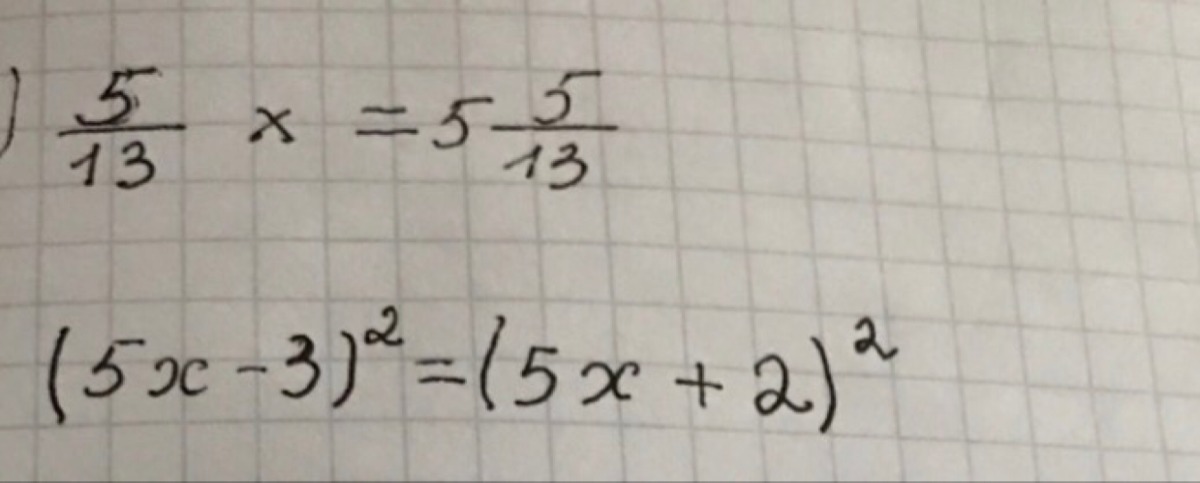 ) 5/13 x = 5 5/13
(5x - 3)² = (5x + 2)²